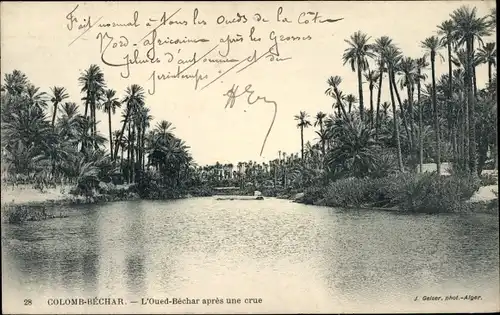 Fait normal à tous les Oueds de la Côte
Nord-africaine après les grosses
pluies d'automne et de
printemps
28 COLOMB-BÉCHAR. — L'Oued-Béchar après une crue
J. Geiser, phot.-Alger.